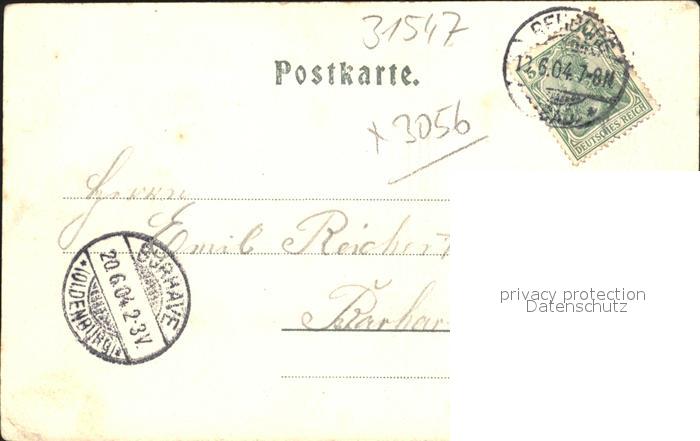 31547
Postkarte.
x 3056
12.6.04.7-8N
DEUTSCHES REICH
Herrn
Emil Reichert
BURHAVE
20.6.04.2-3V.
*(OLDENBURG)*
privacy protection
Datenschutz